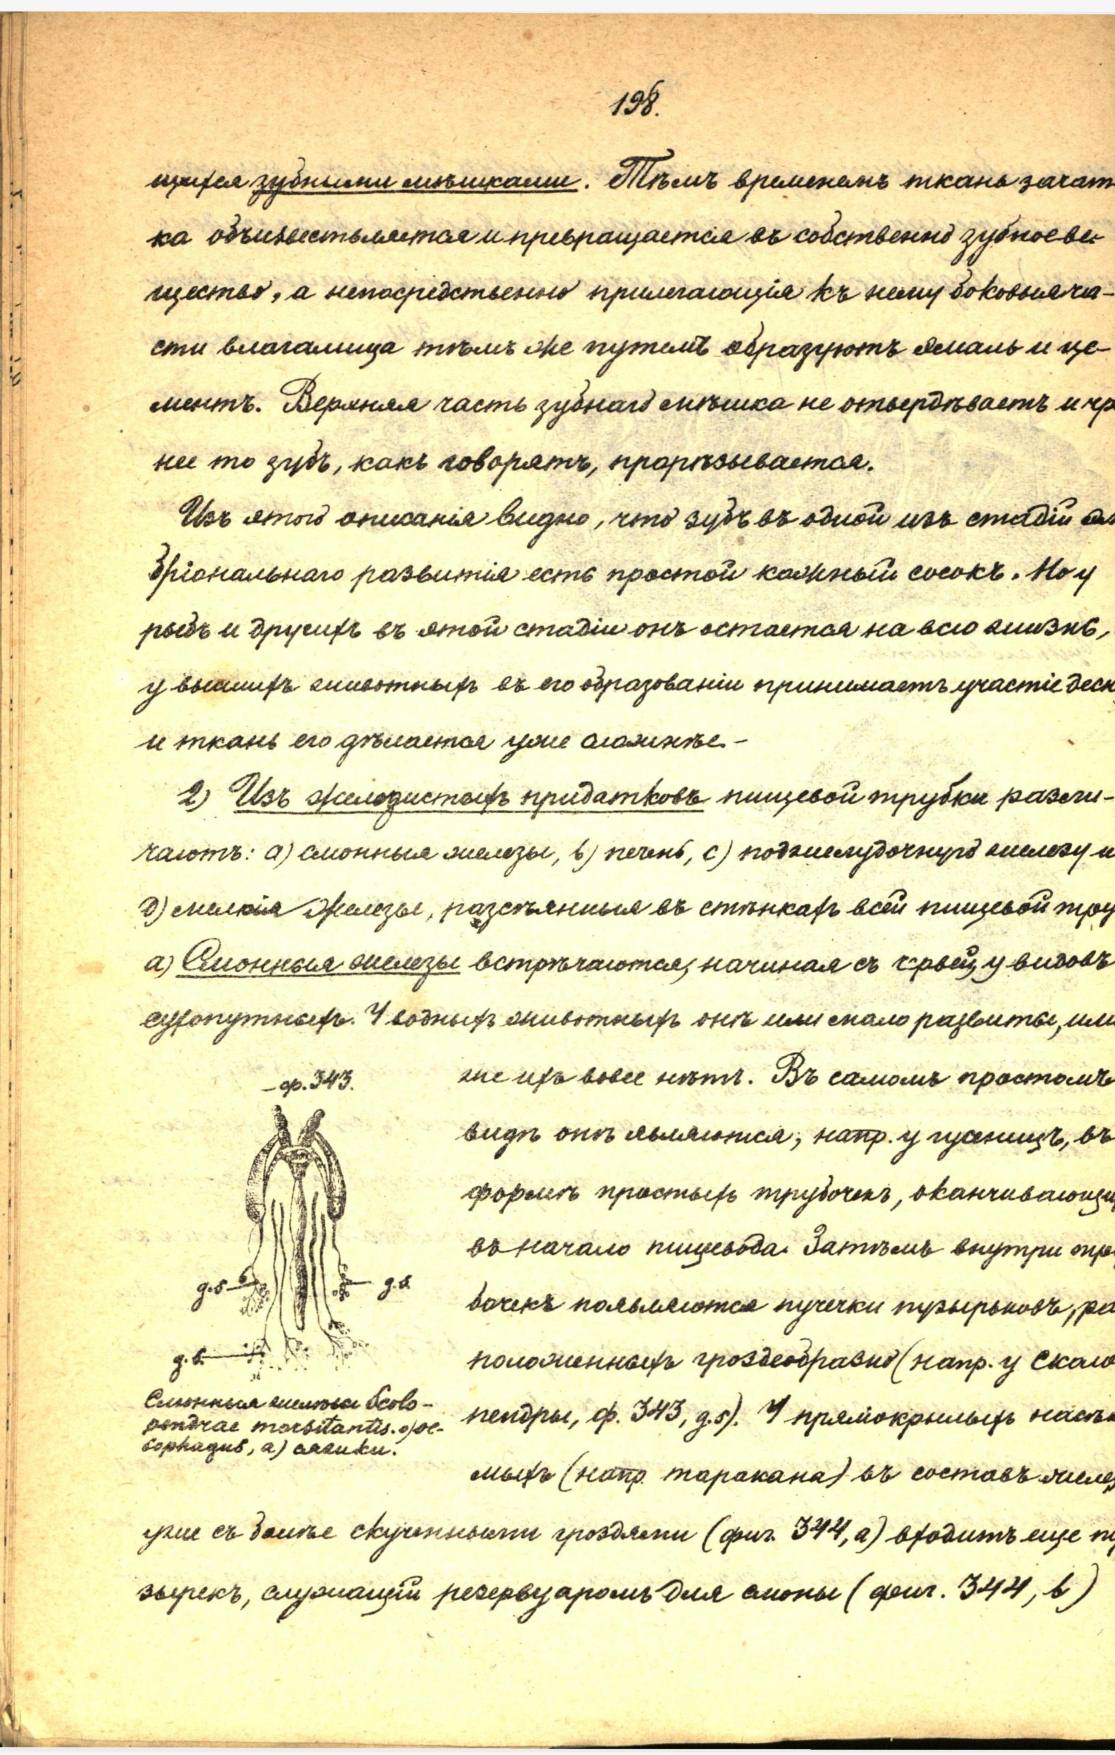 198.
щихся зубными мѣшками. Тѣмъ временемъ ткань зачат
ка объизвествляется и превращается въ собственно зубное ве-
щество, а непосредственно прилегающія къ нему боковыя ча-
сти влагалища тѣмъ же путемъ образуютъ эмаль и це-
ментъ. Верхняя часть зубнаго мѣшка не отвердѣваетъ и чр
нее то зубъ, какъ говорятъ, прорѣзывается.
Изъ этого описанія видно, что зубъ въ одной изъ стадій эм
бріональнаго развитія есть простой кожный сосокъ. Но у
рыбъ и другихъ въ этой стадіи онъ остается на всю жизнь,
у высшихъ животныхъ въ его образованіи принимаетъ участіе десн
и ткань его дѣлается уже сложнѣе.-
2) Изъ железистыхъ придатковъ пищевой трубки разли-
чаютъ: а) слюнныя железы, b) печень, c) поджелудочную железу и
d) мелкія железы, разсѣянныя въ стѣнкахъ всей пищевой тру
а) Слюнныя железы встрѣчаются, начиная съ червей, у видовъ
сухопутныхъ. У водныхъ животныхъ онѣ или мало развиты, или
же ихъ вовсе нѣтъ. Въ самомъ простомъ
видѣ онѣ являются, напр. у гусеницъ, въ
формѣ простыхъ трубочекъ, оканчивающи
въ начало пищевода. Затѣмъ внутри тру
бочекъ появляются пучечки пузырьковъ, ра
положенныхъ гроздеобразно (напр. у Сколо
пендры, ф. 343, g.s). У прямокрылыхъ насѣк
мыхъ (напр. таракана) въ составъ желез
уже съ болѣе скученными гроздями (фиг. 344, а) входитъ еще пу
зырекъ, служащій резервуаромъ для слюны (фиг. 344, b)
ф. 343.
g.s
g.s
g.s
Слюнныя железы Scolo-
pendrae morsitantis. o) oe-
sophagus, a)